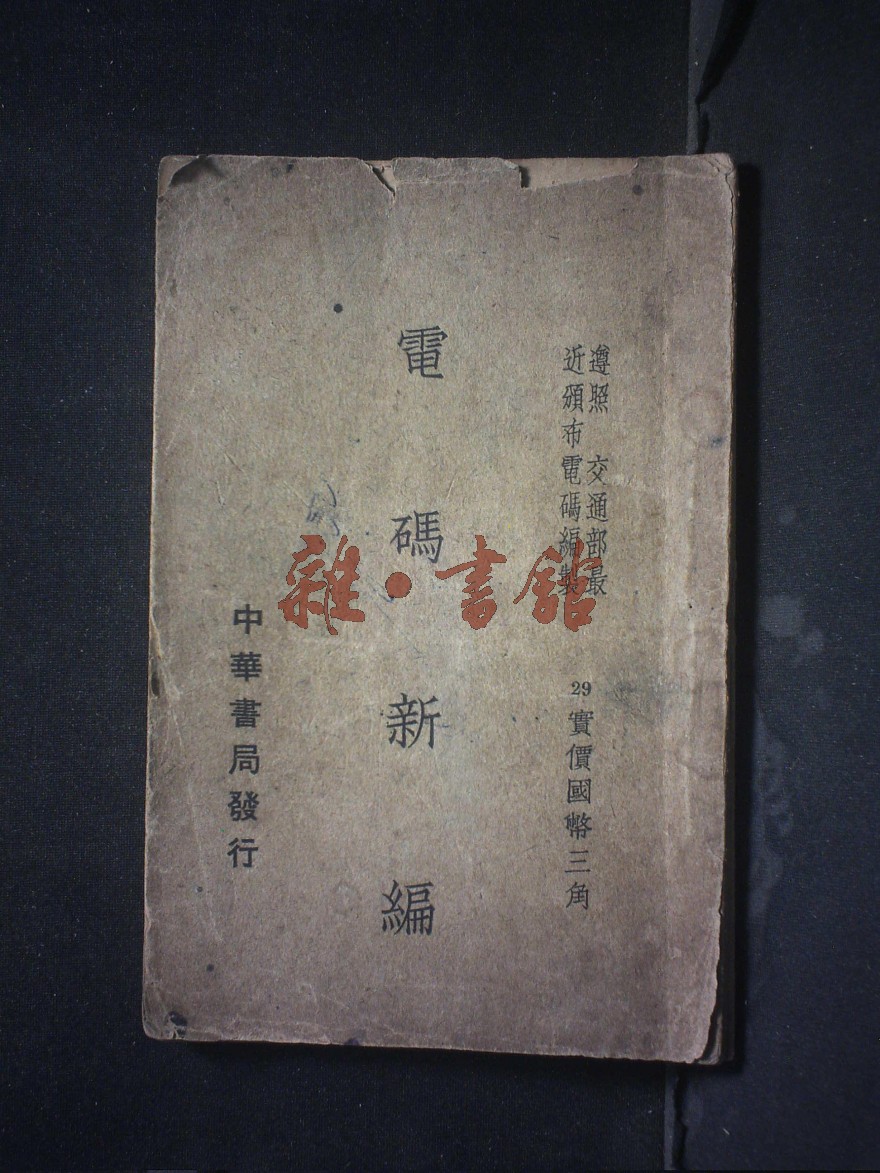 遵照　交通部最
近頒布電碼編製
29實價國幣三角
電碼新編
中華書局發行
雜·書館